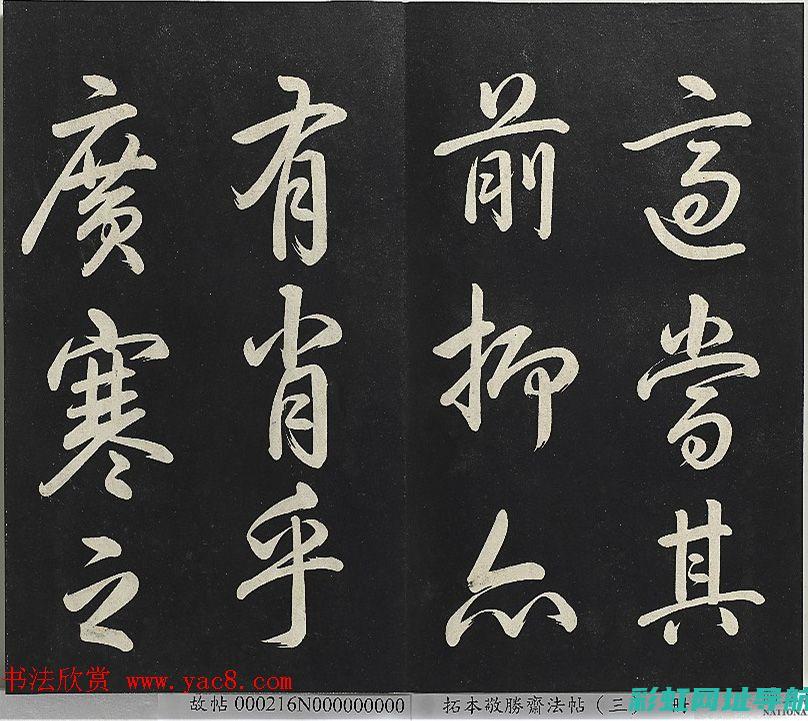 適當其
前抑亦
有肖乎
廣寒之
书法欣赏 www.yac8.com
故帖 000216N000000000
拓本敬勝齋法帖（三）
彩虹网址导航
NATIONA